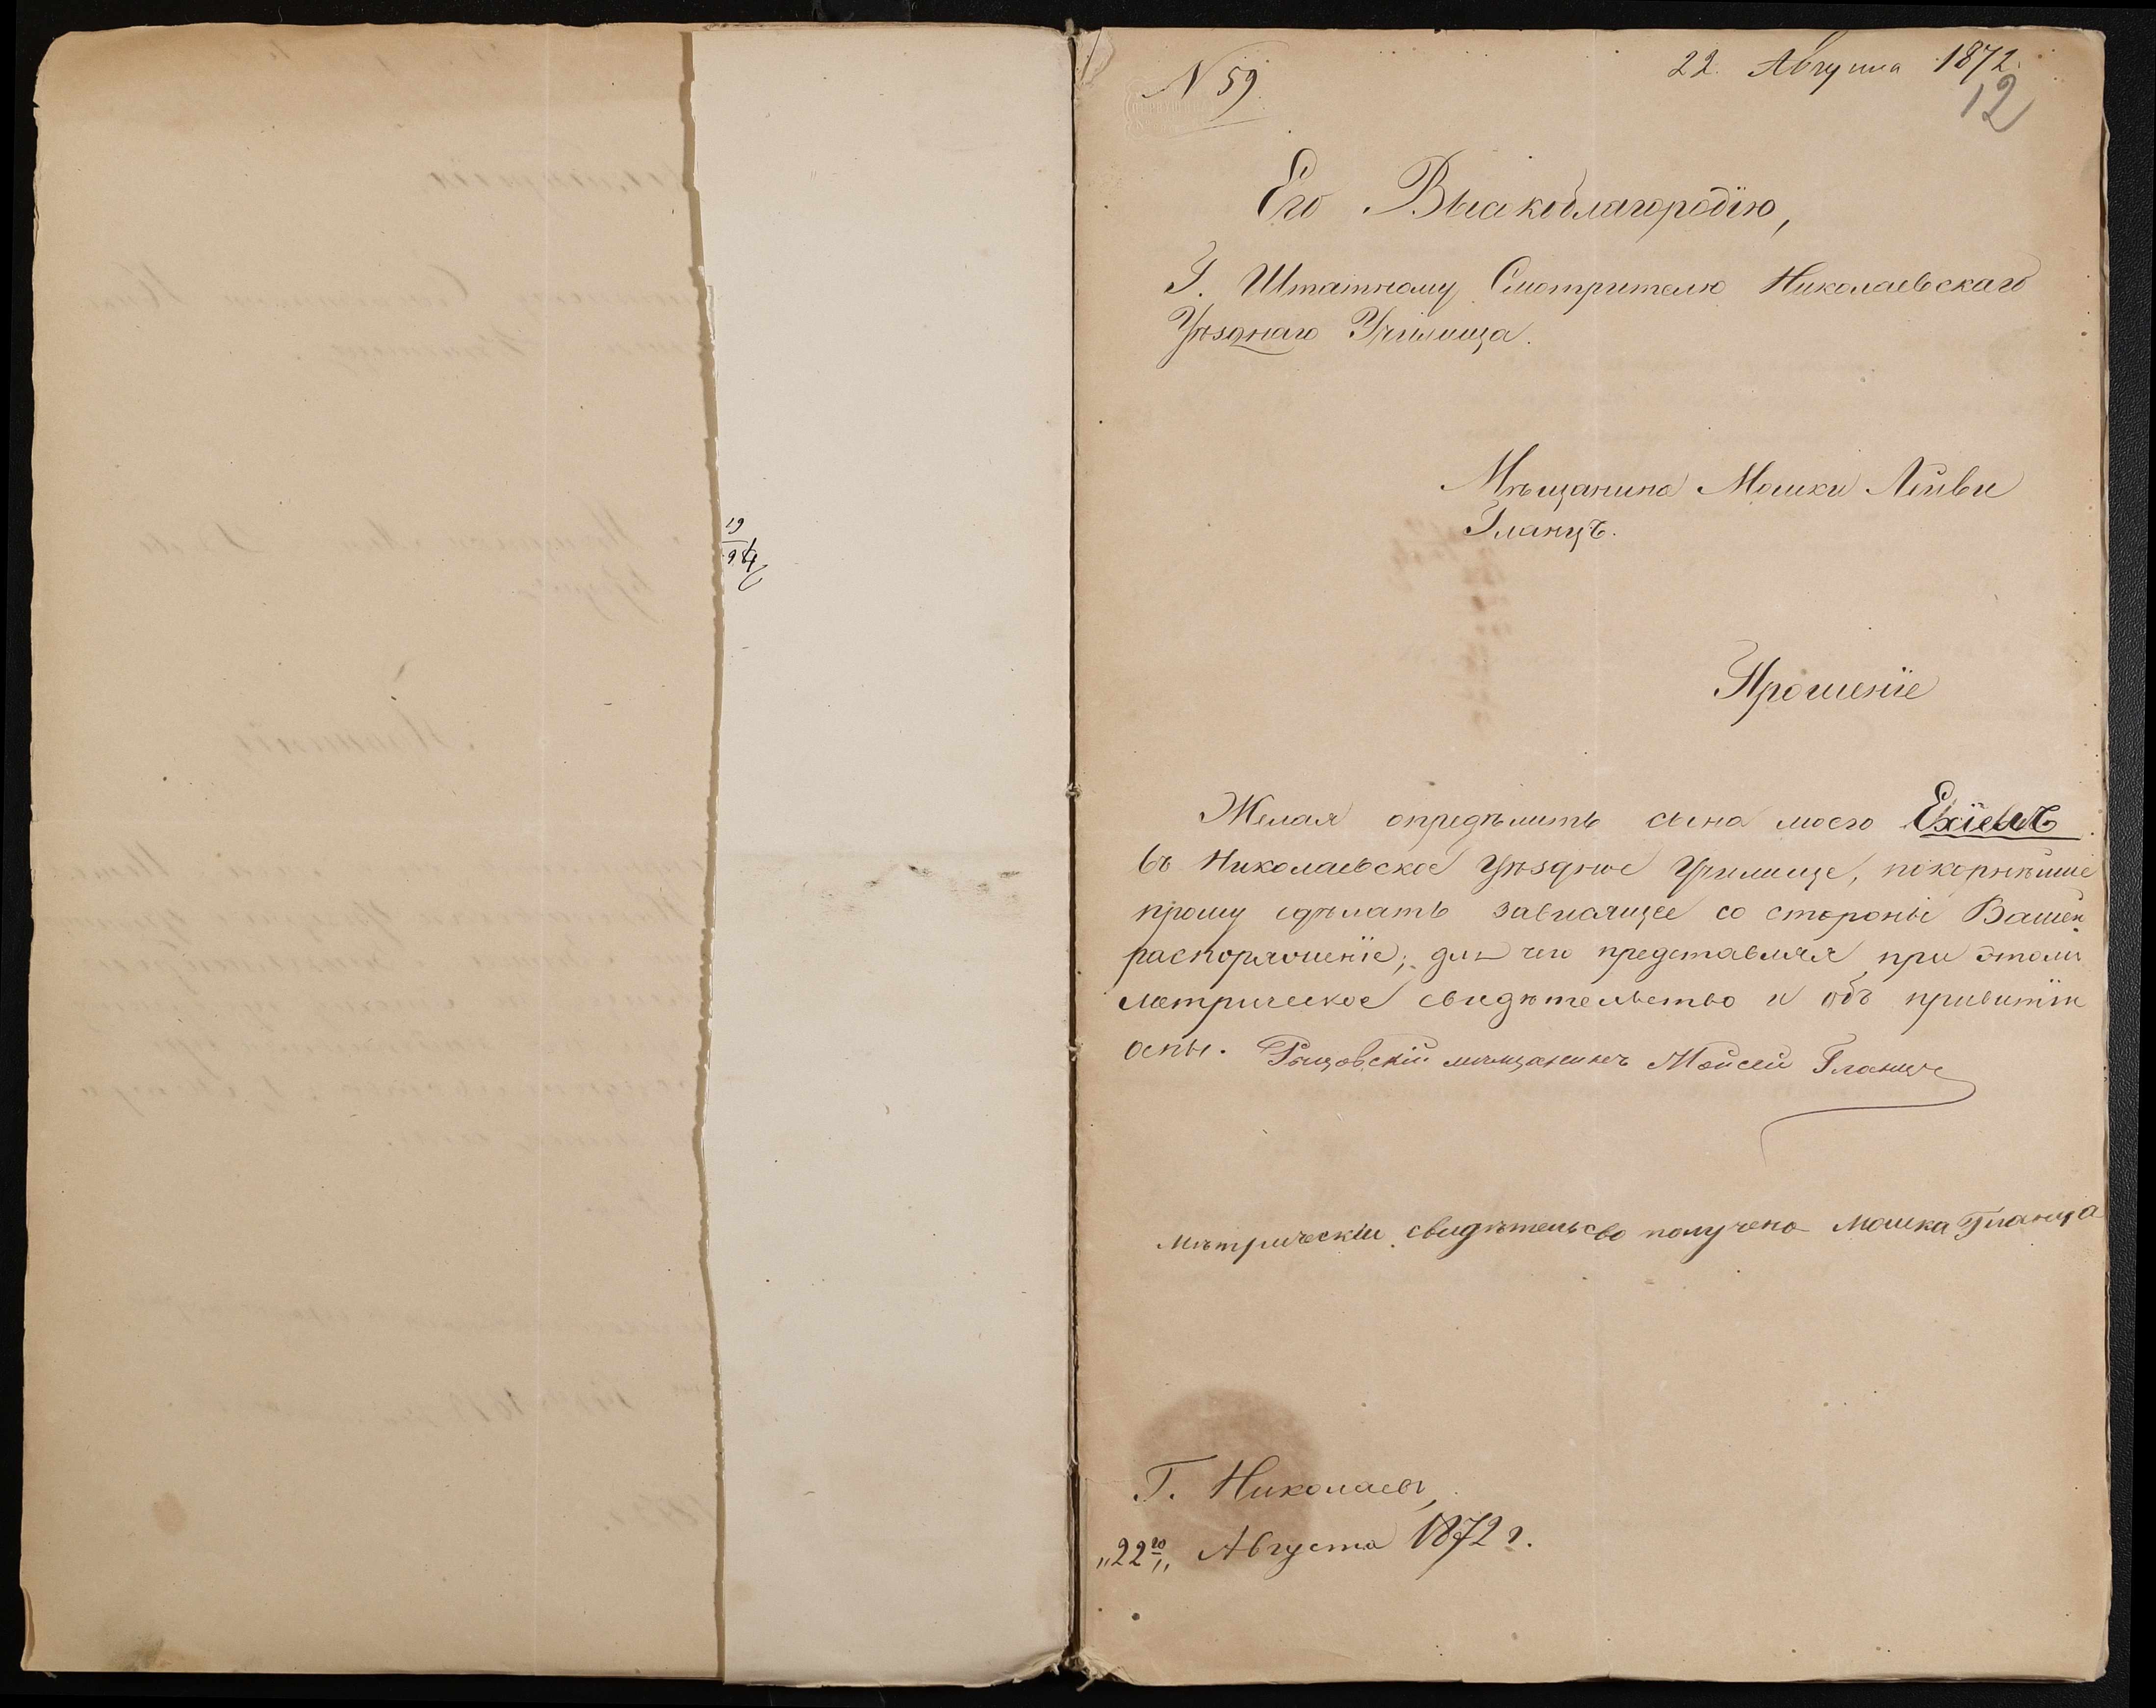 N 59
22. Августа 1872.
12
Его Высокоблагородію,
Г. Штатному Смотрителю Николаевскаго
Уѣзднаго Училища.
Мѣщанина Мошки Лейви
Гланцъ.
Прошеніе
Желая опредѣлить сына моего Ехіевлъ
въ Николаевское Уѣздное Училище, покорнѣйше
прошу сдѣлать зависящее со стороны Вашей
распоряженіе; для чего представляя при этомъ
метрическое свидѣтельство и объ привитіи
оспы. мѣщанинъ Мойсей Гланцъ
Мѣтрическіи свидѣтельсво получено Мошка Гланца
Г. Николаевъ,
„22го„ Августа 1872 г.